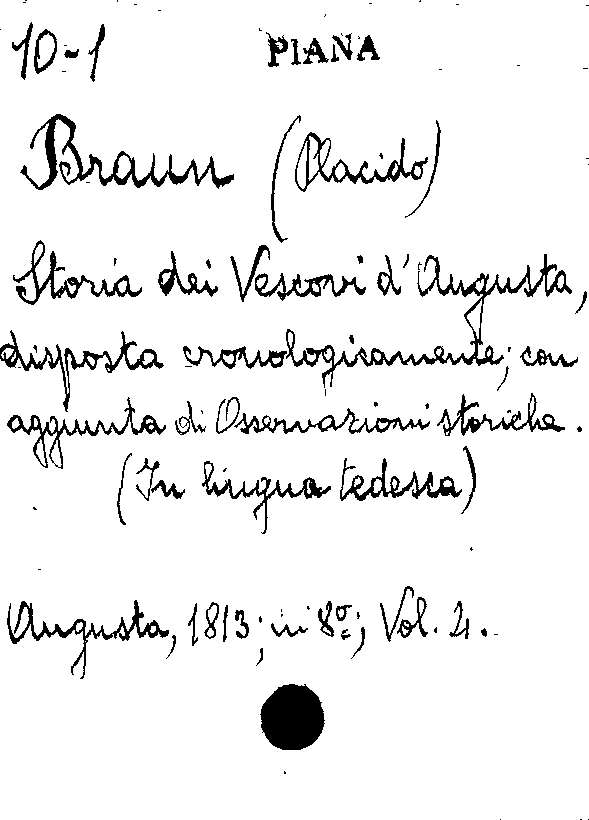 10-1 PIANA
Braun (Placido)
Storia dei Vescovi d'Augusta,
disposta cronologicamente; con
aggiunta di Osservazioni storiche.
(In lingua tedesca)
Augusta, 1813; in 8º; Vol. 4.